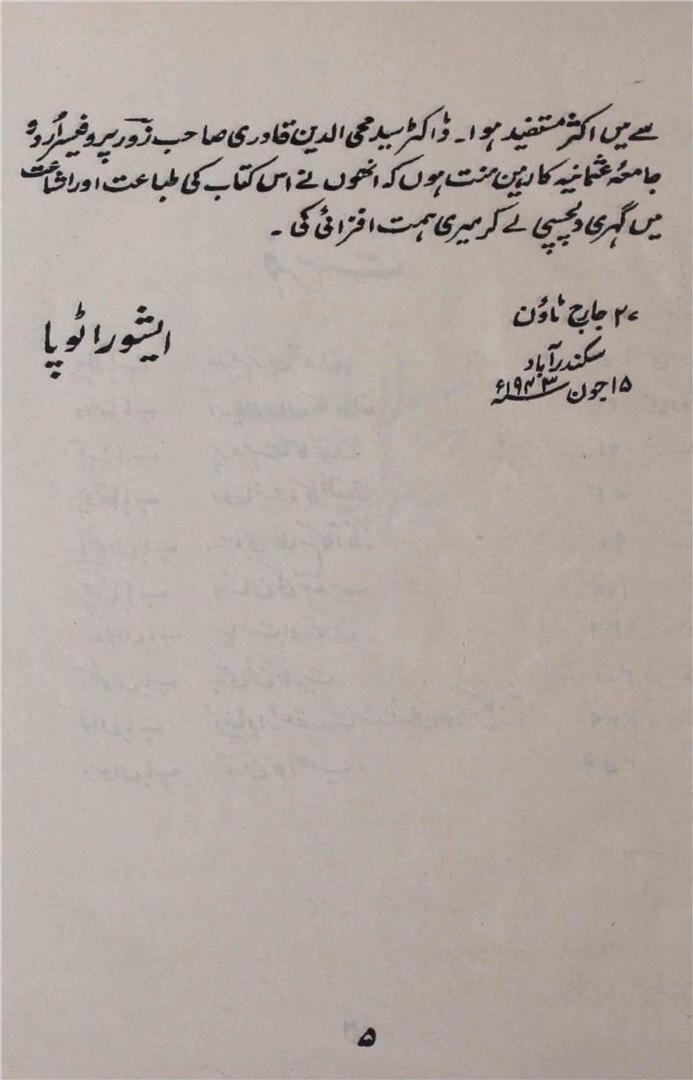 سے میں اکثر مستفید ہوا۔ ڈاکٹر سید محی الدین قادری صاحب زورؔ پروفیسر اُردو
جامعۂ عثمانیہ کا رہین منت ہوں کہ انھوں نے اس کتاب کی طباعت اور اشاعت
میں گہری دلچسپی لے کر میری ہمت افزائی کی ۔
۲۷ جارج ٹاؤن
ایشورا ٹوپا
سکندرآباد
۱۵ جون ۱۹۴۳ء
۵